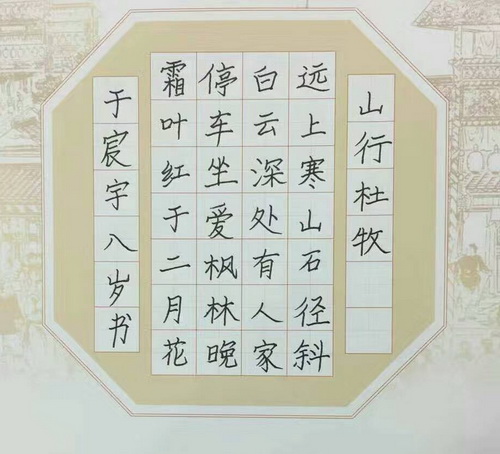 山行杜牧
远上寒山石径斜
白云深处有人家
停车坐爱枫林晚
霜叶红于二月花
于宸宇八岁书